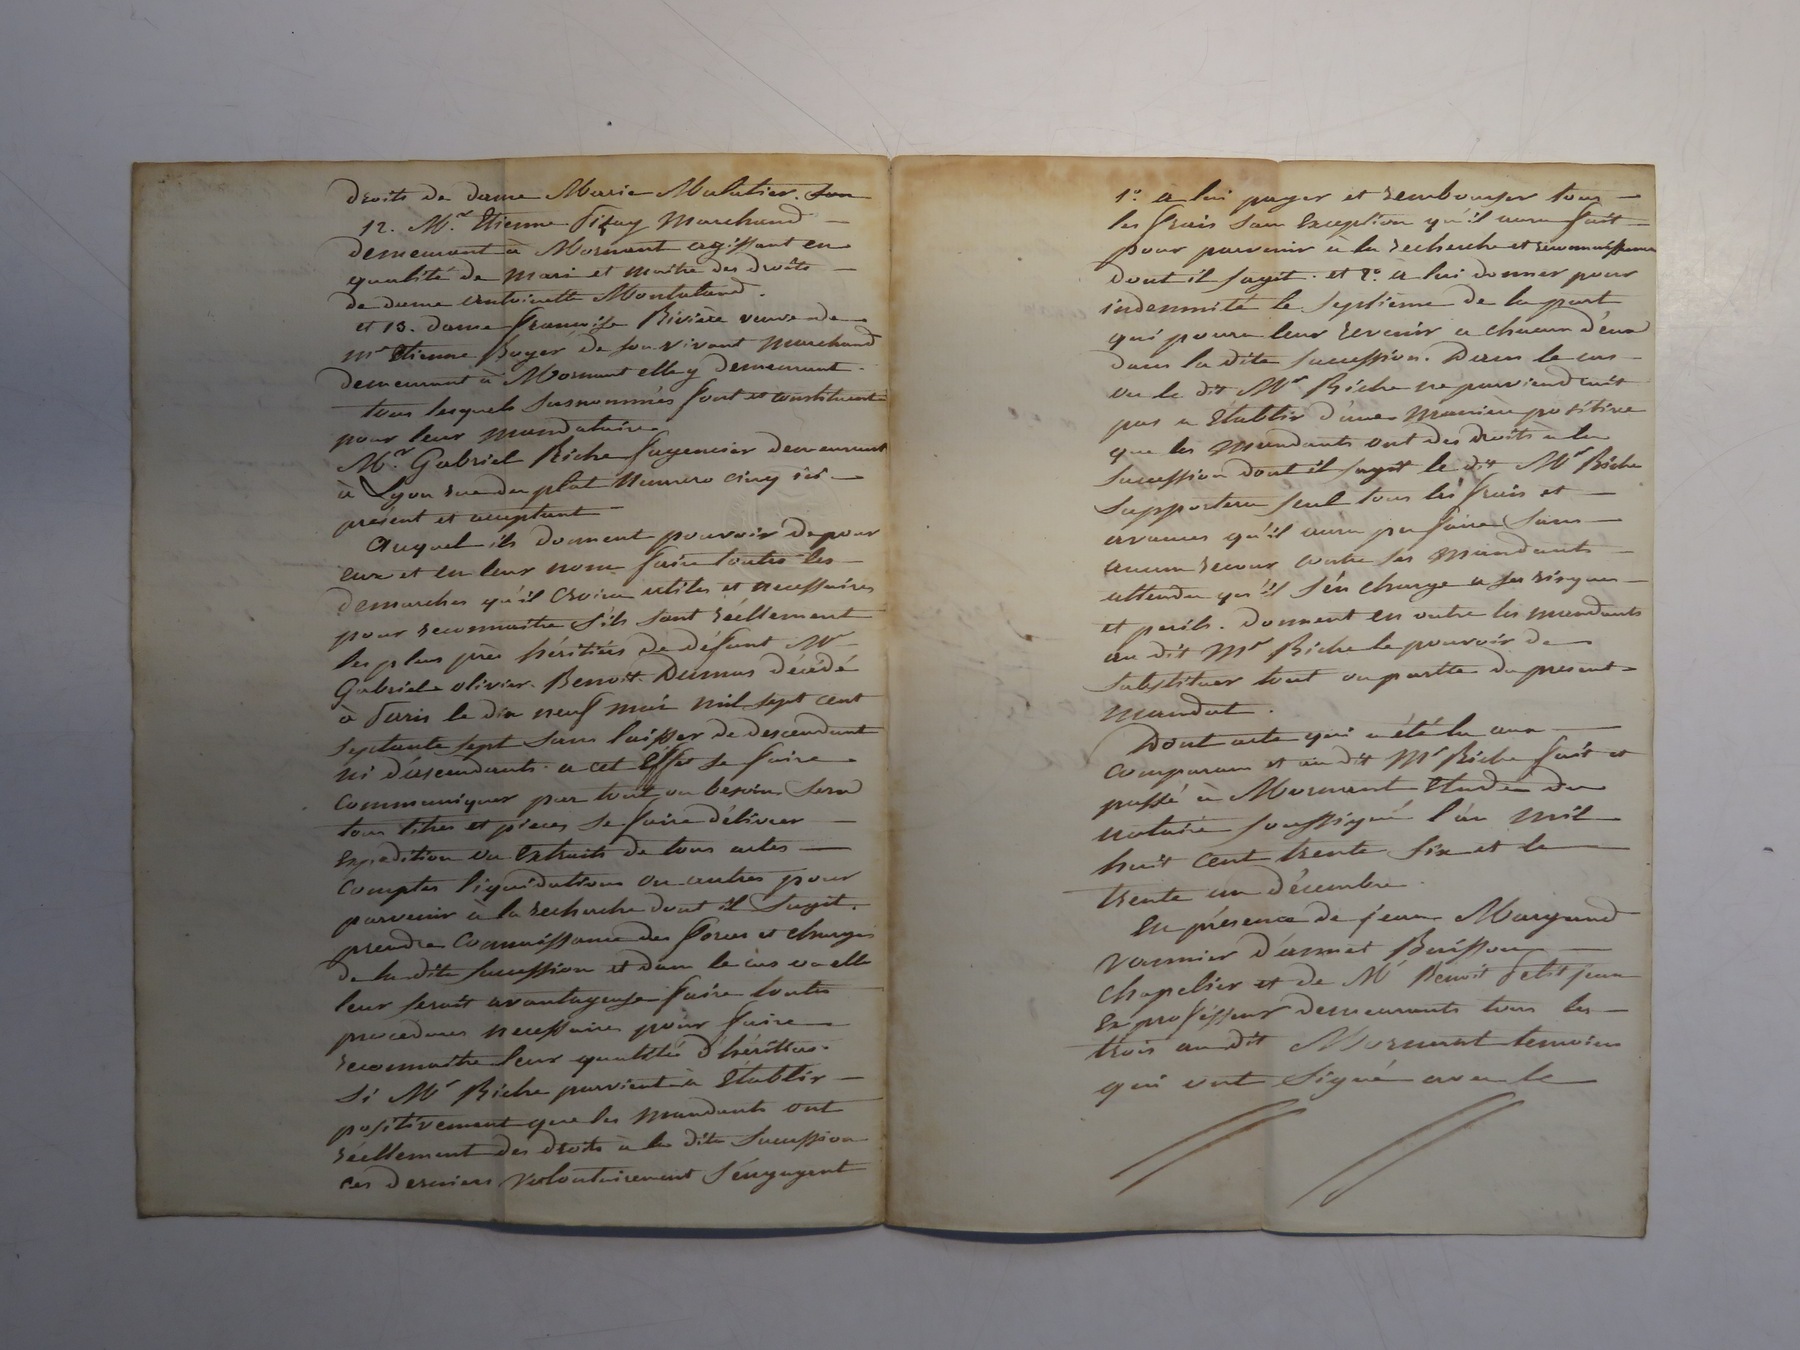 droits de dame Marie Malatier. son
12. Mr. Etienne Pitay Marchand
demeurant à Mornant agissant en
qualité de mari et maitre des droits
de dame antoinette Montaland.
et 13. dame francoise Rivière veuve de
mr Etienne Boyer de son vivant marchand
demeurant à Mornant elle y demeurant.
tous lesquels susnommés font et constituent
pour leur mandataire
Mr. Gabriel Riche sagencier demeurant
à Lyon rue du plat Numero cinq ici
présent et acceptant
Auquel ils donnent pouvoir de pour
eux et en leur nom faire toutes les
demarches qu'il croira utiles et necessaires
pour reconnaitre s'ils sont réellement
les plus près héritiers de défunt Mr
Gabriel olivier Benoit Dumas décédé
à Paris le dix neuf mai mil sept cent
septante sept sans laisser de descendant
ni d'ascendants. a cet Effet se faire
communiquer par tout ou besoin sera
tous titres et pieces se faire délivrer
Expedition ou Extraits de tous actes
comptes liquidations ou autres pour
parvenir à la recherche dont il sagit.
prendre Connaissance des forces et charges
de la dite succession et dans le cas ou elle
leur serait avantageuse faire toutes
procedures necessaires pour faire
reconnaitre leur qualités d'héritiers.
Si Mr Riche parvient à Etablir
positivement que les mandants ont
réellement des droits à la dite succession
ces derniers volontairement s'engagent
1° a lui payer et rembourser tous
les frais sans Exception qu'il aura fait
pour parvenir à la recherche et reconnaissance
dont il sagit. et 2° à lui donner pour
indemnité le septième de la part
qui poura leur revenir a chacun d'eux
dans la dite succession. Dans le cas
ou le dit Mr Riche ne parviendrait
pas a Etablir d'une manière positive
que les mandants ont des droits à la
succession dont il sagit le dit Mr Riche
supportera seul tous les frais et
avances qu'il aura pu faire sans
aucun recour contre les mandants
attendu qu'il s'en charge a ses risques
et perils. donnent en outre les mandants
au dit Mr Riche le pouvoir de
substituer tout ou partie du present
mandat.
Dont acte qui a été lu aux
comparans et au dit Mr Riche fait et
passé à Mornant Etude du
notaire soussigné l'an mil
huit cent trente six et le
trente un décembre.
En présence de jean Margand
vannier d'annet Buisson
chapelier et de Mr Benoit Petitjean
Ex professeur demeurants tous les
trois au dit Mornant temoins
qui ont signé avec le